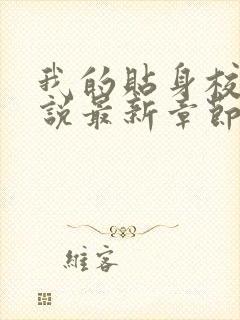 我的貼身校
說最新章節
維客